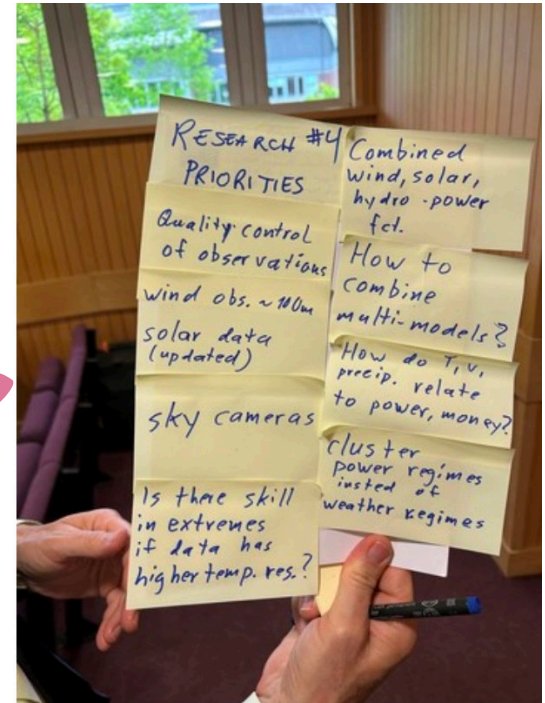 RESEARCH #4
PRIORITIES
Quality control
of observations
wind obs. ~ 100m
solar data
(updated)
sky cameras
Is there skill
in extremes
if data has
higher temp. res.?
Combined
wind, solar,
hydro-power
fct.
How to
combine
multi-models?
How do T, v,
precip. relate
to power, money?
cluster
power regimes
insted of
weather regimes